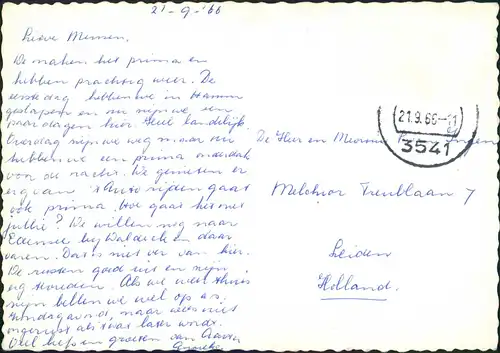 21-9-'66
Lieve Mensen,
We maken het prima en
hebben prachtig weer. De
eerste dag hebben we in Hamm
geslapen en nu zijn we een
paar dagen hier. Heel landelijk.
Overdag zijn we weg maar we
hebben we een prima onderdak
voor de nacht. We genieten er
erg van. 't Auto rijden gaat
ook prima. Hoe gaat het met
jullie? We willen nog naar
Edersee bij Waldeck en daar
varen. Dat is niet ver van hier.
De zien goed uit en zijn
erg tevreden. Als we weer thuis
zijn bellen we wel op
Zondagavond, maar wees niet
ongerust als 't wat later wordt.
Veel liefs en groeten van
De Heer en Mevrouw
Melchior Treublaan 7
Leiden
Holland.
21.9.66-11
3541